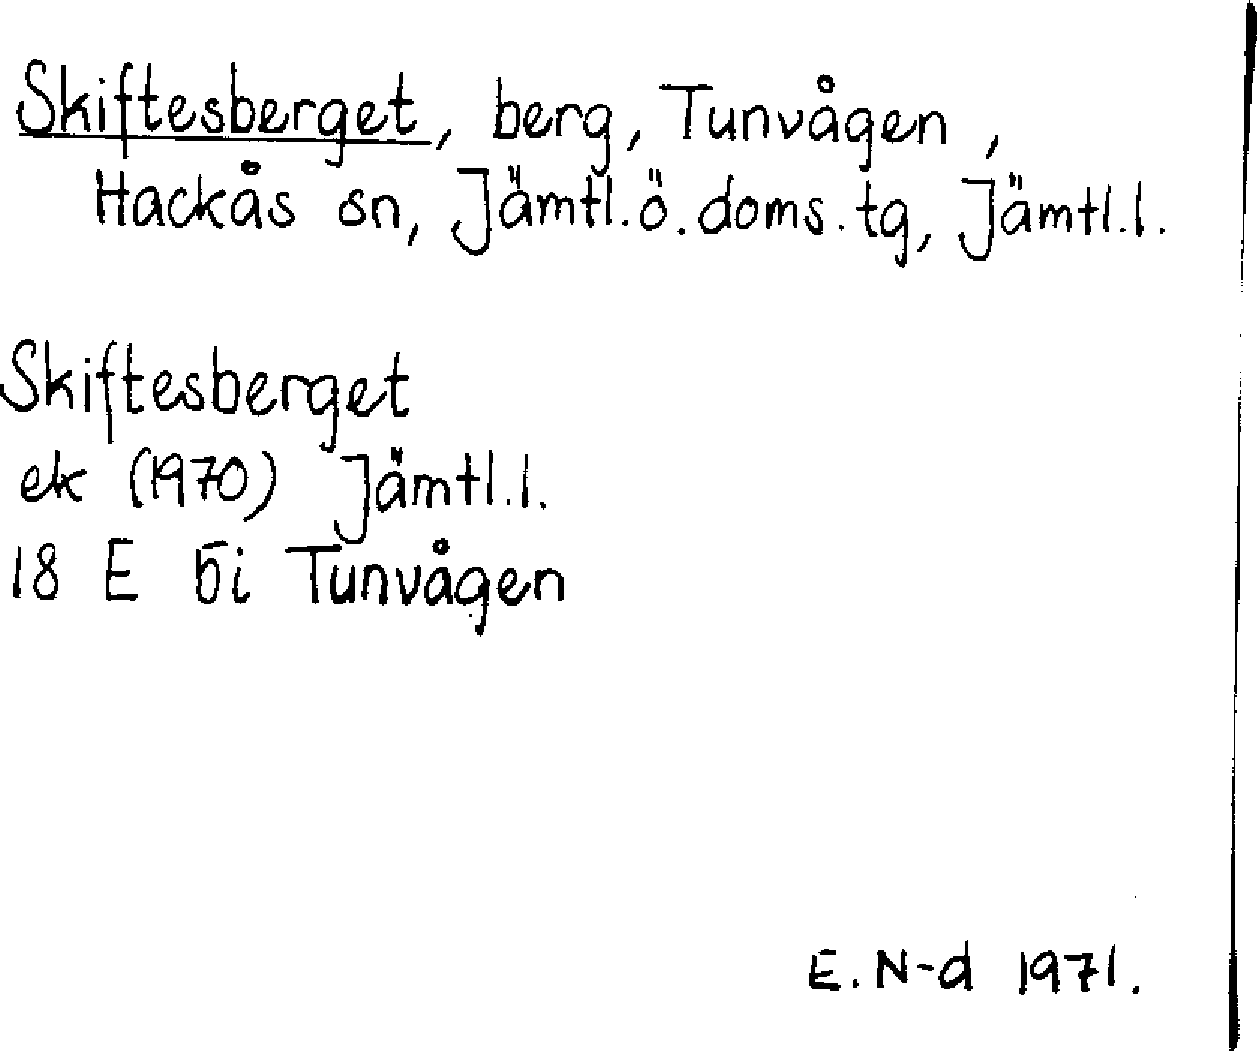 Skiftesberget, berg, Tunvågen,
Hackås sn, Jämtl.ö.doms.tg, Jämtl.l.
Skiftesberget
ek (1970) Jämtl.l.
18 E 5i Tunvågen
E.N-d 1971.